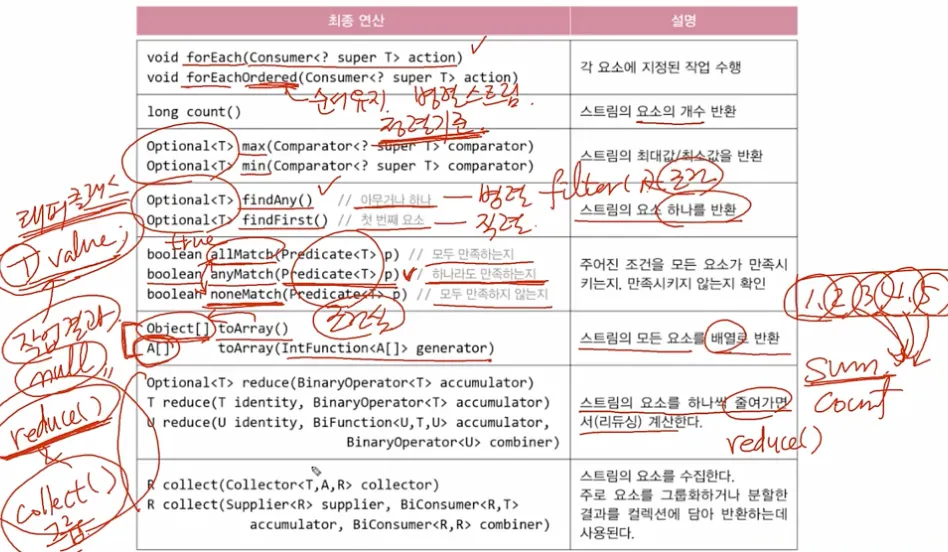 최종 연산
설명
void forEach(Consumer<? super T> action)
void forEachOrdered(Consumer<? super T> action)
각 요소에 지정된 작업 수행
순서유지. 병렬스트림.
long count()
스트림의 요소의 개수 반환
정렬기준.
Optional<T> max(Comparator<? super T> comparator)
Optional<T> min(Comparator<? super T> comparator)
스트림의 최대값/최소값을 반환
래퍼클래스
T value;
Optional<T> findAny() // 아무거나 하나
병렬 filter( 조건
Optional<T> findFirst() // 첫 번째 요소
직렬.
스트림의 요소 하나를 반환
true
boolean allMatch(Predicate<T> p) // 모두 만족하는지
boolean anyMatch(Predicate<T> p) // 하나라도 만족하는지
boolean noneMatch(Predicate<T> p) // 모두 만족하지 않는지
주어진 조건을 모든 요소가 만족시
키는지, 만족시키지 않는지 확인
1, 2 3, 4, 5
조건식
작업결과
null
Object[] toArray()
A[] toArray(IntFunction<A[]> generator)
스트림의 모든 요소를 배열로 반환
sum
count
Optional<T> reduce(BinaryOperator<T> accumulator)
T reduce(T identity, BinaryOperator<T> accumulator)
U reduce(U identity, BiFunction<U,T,U> accumulator,
BinaryOperator<U> combiner)
스트림의 요소를 하나씩 줄여가면
서(리듀싱) 계산한다.
reduce()
reduce()
collect()
그룹
R collect(Collector<T,A,R> collector)
R collect(Supplier<R> supplier, BiConsumer<R,T>
accumulator, BiConsumer<R,R> combiner)
스트림의 요소를 수집한다.
주로 요소를 그룹화하거나 분할한
결과를 컬렉션에 담아 반환하는데
사용된다.